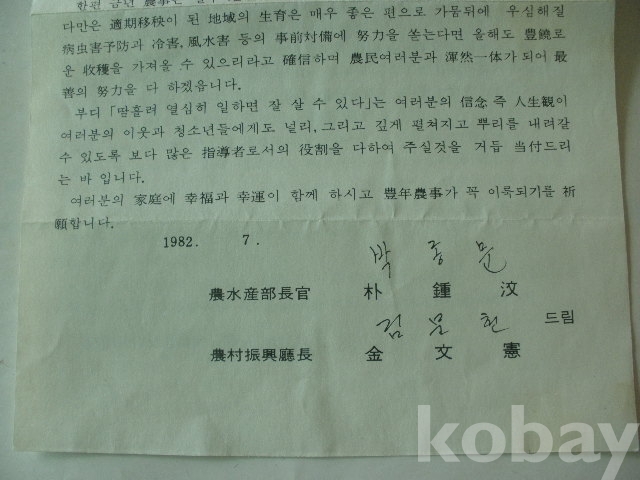 한편 금년 農事는
다만은 適期移秧이 된 地域의 生育은 매우 좋은 편으로 가뭄뒤에 우심해질
病虫害予防과 冷害, 風水害 등의 事前対備에 努力을 쏟는다면 올해도 豊饒로
운 収穫을 가져올 수 있으리라고 確信하며 農民여러분과 渾然一体가 되어 最
善의 努力을 다 하겠읍니다.
부디 「땀흘려 열심히 일하면 잘 살 수 있다」는 여러분의 信念 즉 人生観이
여러분의 이웃과 청소년들에게도 널리, 그리고 깊게 펼쳐지고 뿌리를 내려갈
수 있도록 보다 많은 指導者로서의 役割을 다하여 주실것을 거듭 当付드리
는 바 입니다.
여러분의 家庭에 幸福과 幸運이 함께 하시고 豊年農事가 꼭 이룩되기를 祈
願합니다.
1982. 7.
박 종 문
農水産部長官 朴 鍾 汶
김 문 헌 드림
農村振興廳長 金 文 憲
kobay